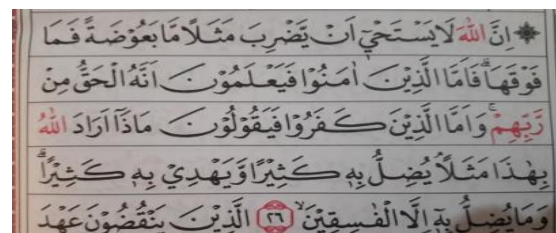 ۞ اِنَّ اللّٰهَ لَا يَسْتَحْيٖٓ اَنْ يَّضْرِبَ مَثَلًا مَّا بَعُوْضَةً فَمَا
فَوْقَهَا ؕ فَاَمَّا الَّذِيْنَ اٰمَنُوْا فَيَعْلَمُوْنَ اَنَّهُ الْحَقُّ مِنْ
رَّبِّهِمْ ۚ وَاَمَّا الَّذِيْنَ كَفَرُوْا فَيَقُوْلُوْنَ مَاذَآ اَرَادَ اللّٰهُ
بِهٰذَا مَثَلًا ۘ يُضِلُّ بِهٖ كَثِيْرًا وَّيَهْدِيْ بِهٖ كَثِيْرًا ؕ
وَمَا يُضِلُّ بِهٖٓ اِلَّا الْفٰسِقِيْنَ ۙ ٢٦ الَّذِيْنَ يَنْقُضُوْنَ عَهْدَ